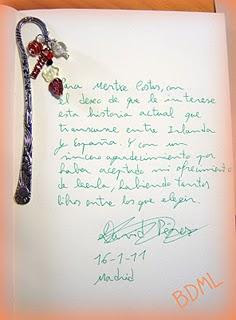 Para Mertxe Costas, con
el deseo de que le interese
esta historia actual que
transcurre entre Irlanda
y España. Y con un
sincero agradecimiento por
haber aceptado mi ofrecimiento
de leerla, habiendo tantos
libros entre los que elegir.
David Pérez
16-1-11
Madrid
BDML